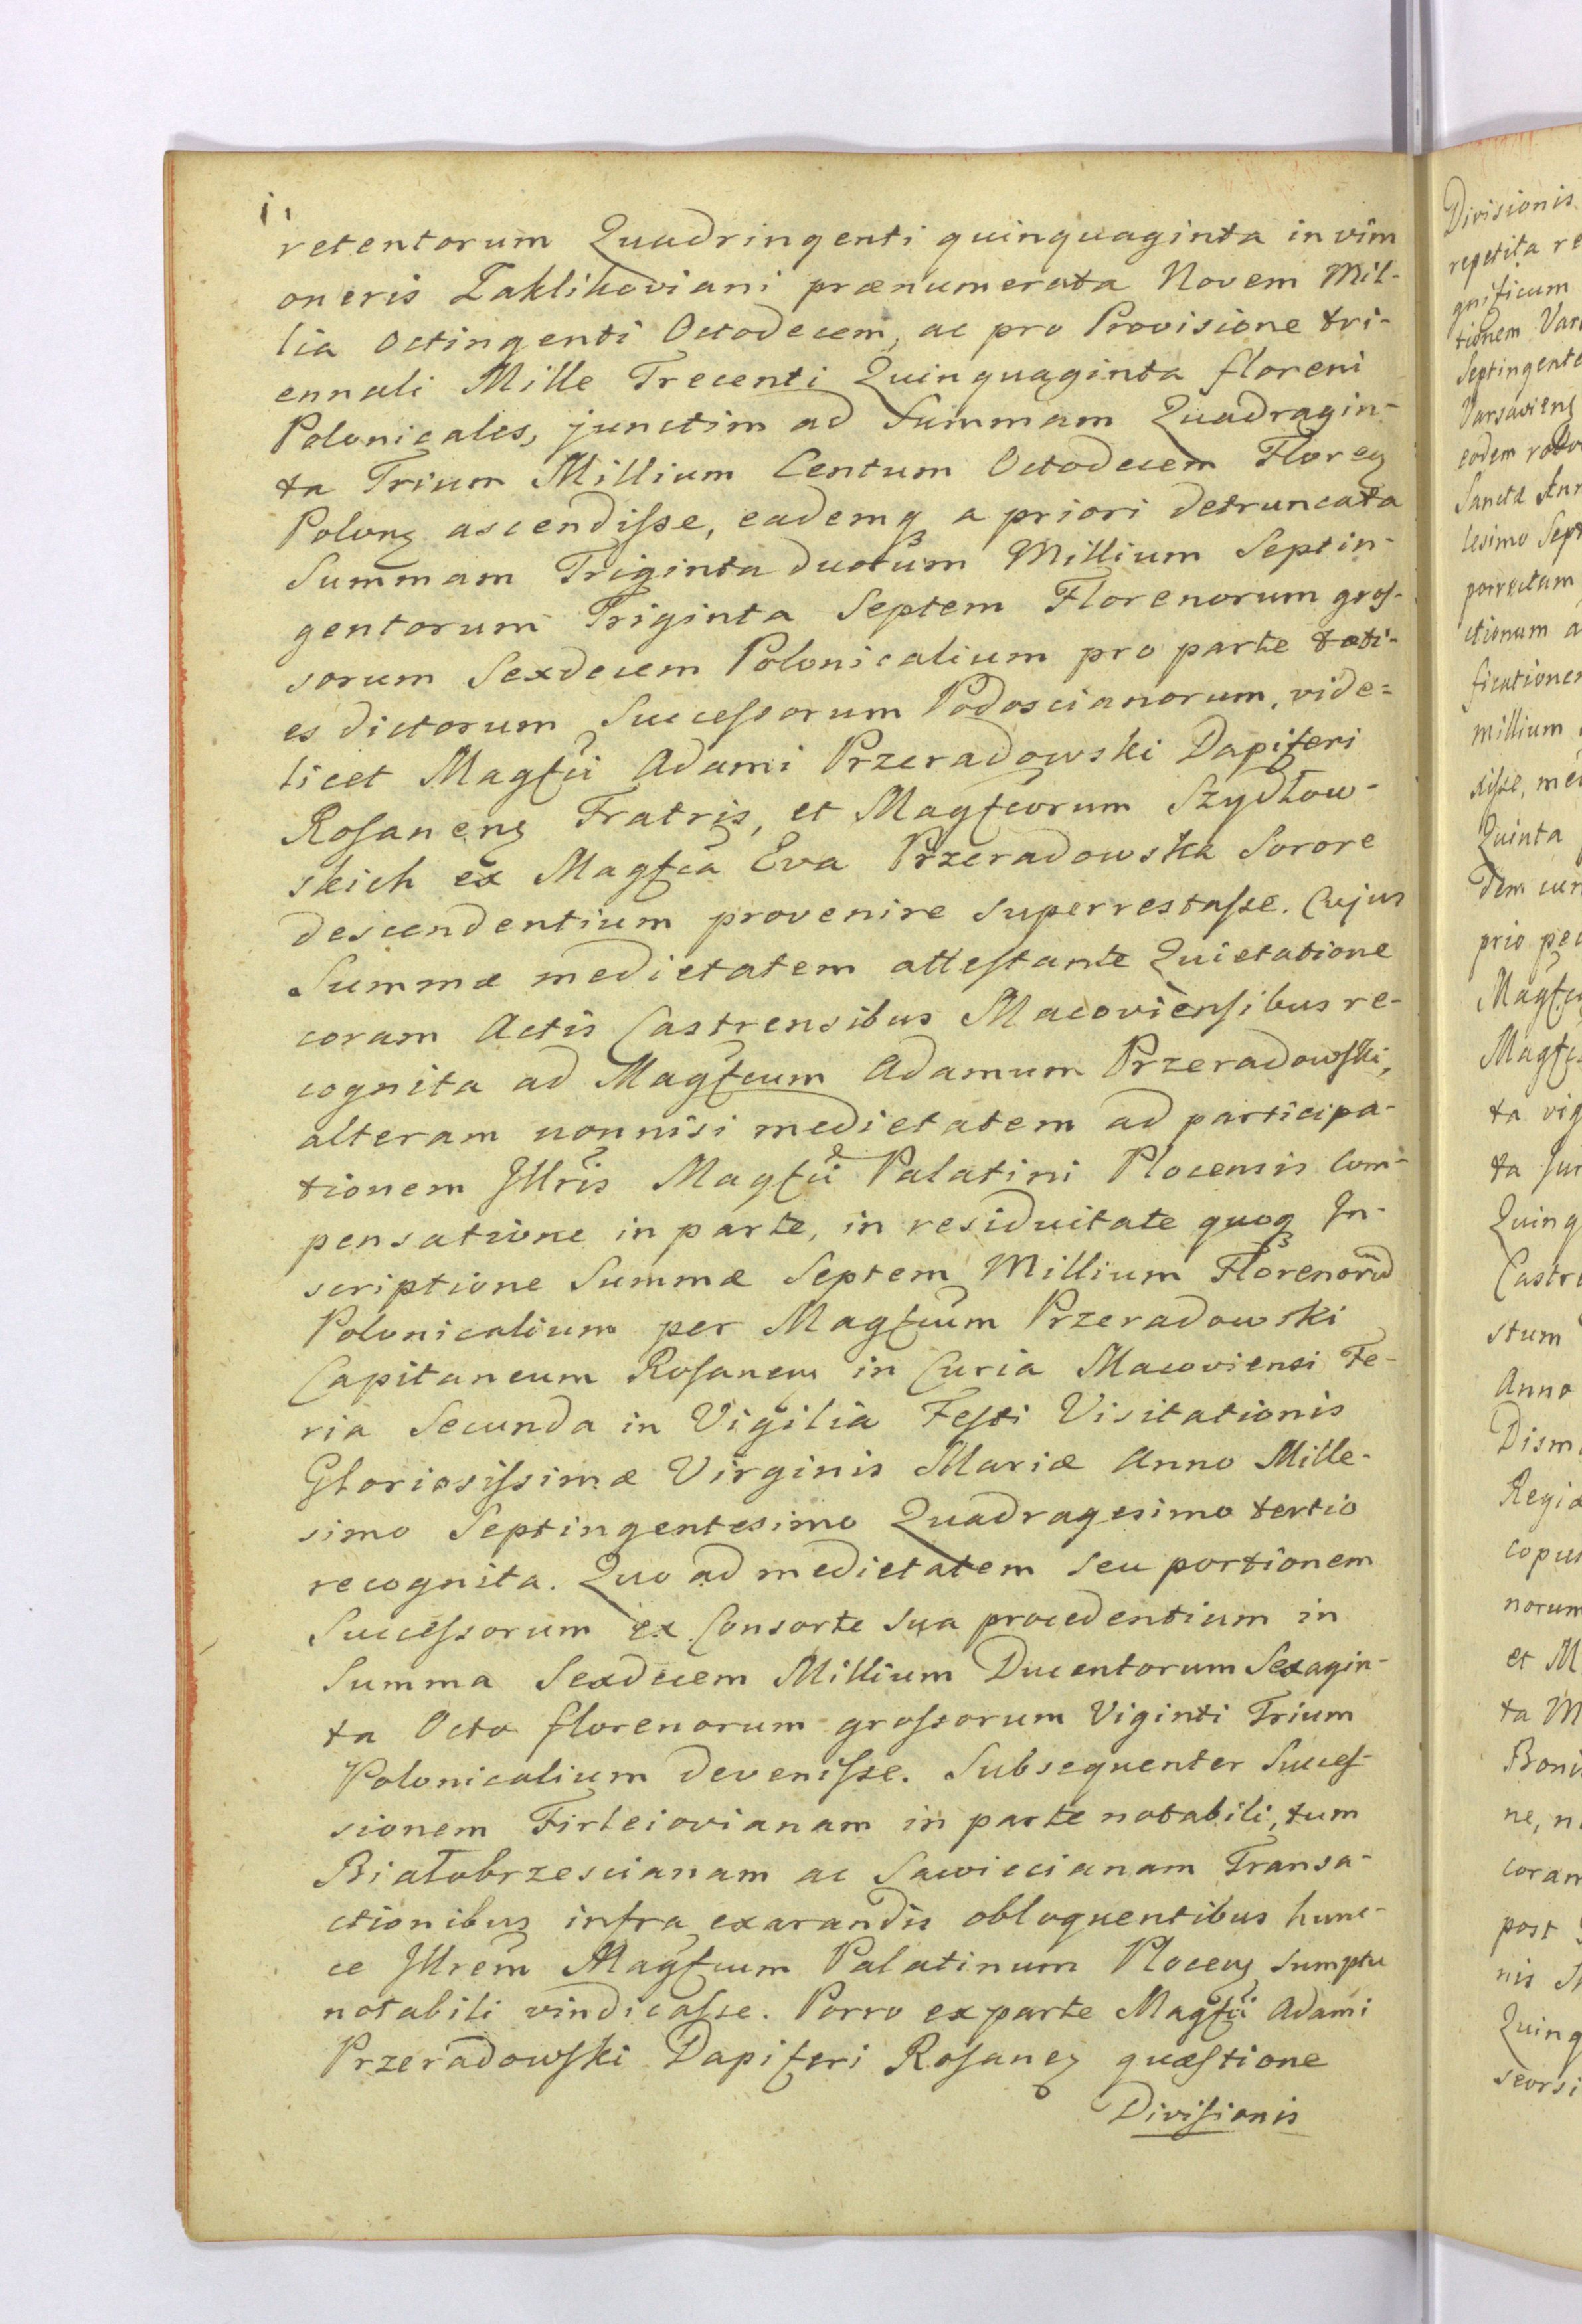 retentorum Quadringenti quinquaginta in vim
oneris Zaklikoviani prænumerata Novem Mil-
lia Octingenti Octodecem, ac pro Provisione tri-
ennali Mille Trecenti Quinquaginta floreni
Polonicales, junctim ad Summam Quadragin-
ta Trium Millium Centum Octodecem Floreꝝ
Polonꝝ ascendiſse, eademqꝫ a priori detruncata
Summam Triginta duorum Millium Septin-
gentorum Triginta Septem Florenorum groſ-
sorum Sexdecem Polonicalium pro parte toti-
es dictorum Succeſsorum Podoscianorum, vide=
licet Magfci Adami Przeradowski Dapiferi
Roſanenꝝ Fratris, et Magfcorum Szydłow-
skich ex Magfca Eva Przeradowska Sorore
descendentium provenire superrestaſse. Cujus
Summæ medietatem atteſtante Quietatione
coram Actis Castrensibus Macovienſibus re-
cognita ad Magfcum Adamum Przeradowſki,
alteram nonnisi medietatem ad participa-
tionem Jllris Magfci Palatini Plocensis Com-
pensatione in parte, in residuitate quoqꝫ Jn-
scriptione Summæ Septem Millium Florenorũ
Polonicalium per Magfcum Przeradowski
Capitaneum Roſanenꝝ in Curia Macoviensi Fe-
ria Secunda in Vigilia Feſti Visitationis
Glorioſiſsimæ Virginis Mariæ Anno Mille-
simo Septingentesimo Quadragesimo tertio
recognita. Quo ad medietatem seu portionem
Succeſsorum ex Consorte sua procedentium in
Summa Sexdecem Millium Ducentorum Sexagin-
ta Octo florenorum groſsorum Viginti Trium
Polonicalium deveniſse. Subsequenter Succeſ-
sionem Firleiovianam in parte notabili, tum
Białobrzescianam ac Sawiccianam Transa-
ctionibus infra exarandis obloquentibus hunc-
ce Jllrem Magfcum Palatinum Plocenꝝ sumptu
notabili vindicaſse. Porro ex parte Magfci Adami
Przeradowſki Dapiferi Roſanenꝝ quæſtione
Diviſionis
Divisionis
repetita re
gnificum
tionem Var
Septingente
Varsavienꝝ
eodem
Sanctæ Ann
lesimo Sept
porrectam
ctionum a
ficationes
millium
Quinta
dem cur
Magfc
Magfc
ta vig
ta Jur
Quinq
Castre
stum
Anno
Regiæ
copus
norum
et M
ta M
Boni
ne, n
coram
post
nis
Quinq
seorsi